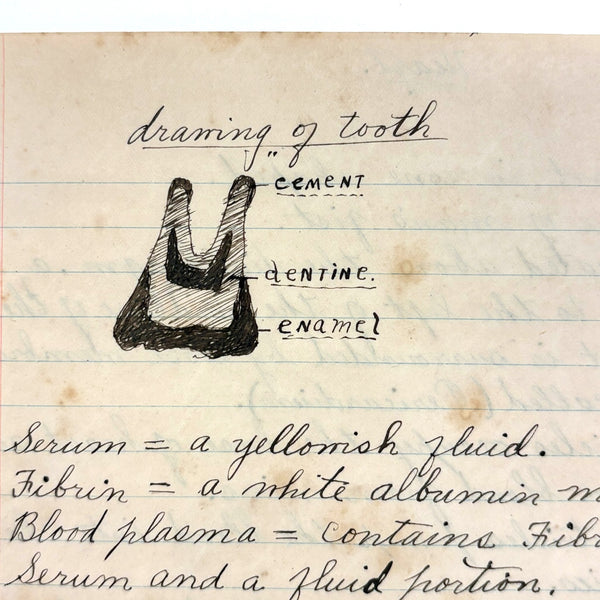 drawing of tooth
CEMENT
dENTiNE.
ENAMEl
Serum = a yellowish fluid.
Fibrin = a white albumin m
Blood plasma = contains Fibr
Serum and a fluid portion.